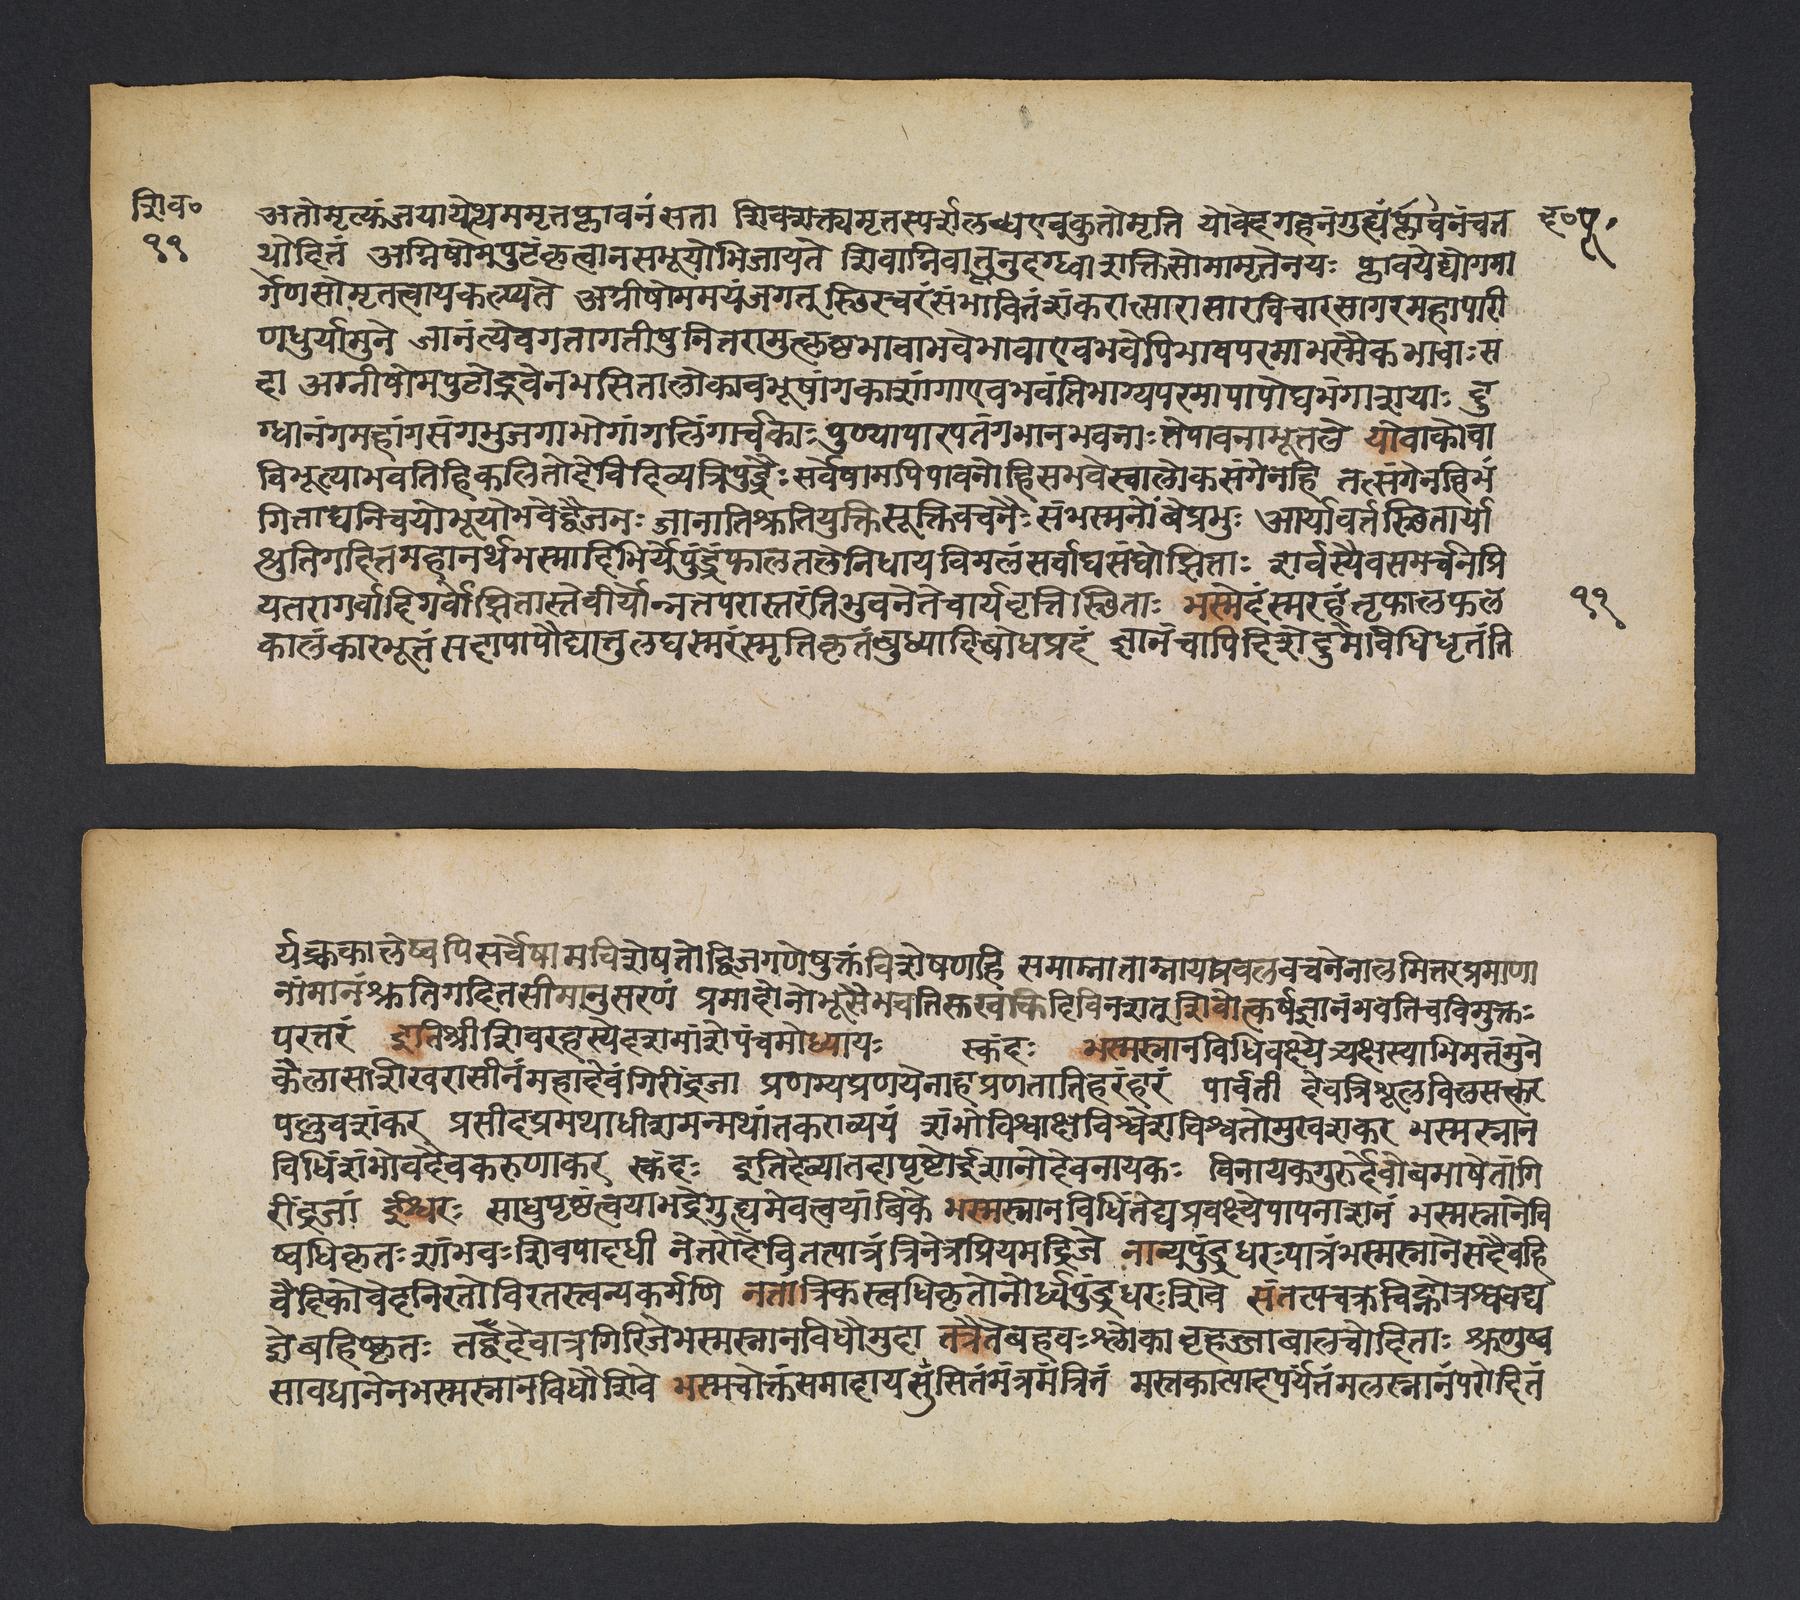 शिव॰
११
द॰पू॰
अतोमृत्युंजयायेत्थममृतप्लावनंसता शिवशक्त्यमृतस्पर्शेलब्धएवकुतोमृति योवेदगहनंगुह्यंप्लावनंचत
थोदितं अग्निषोमपुटंकृत्वानसभूयोभिजायते शिवाग्निवातनुदग्ध्वाशक्तिसोमामृतेनयः प्लावयेद्योगमा
र्गेणसोमृतत्वायकल्प्यते अग्नीषोममयंजगत्तु स्थिरचरंसंभावितंशंकरात्सारासारविचारसागरमहापारी
णधुर्यामुने जानंत्येवगतागतीषुनितरामुत्कृष्टभावाभवेभावाएवभवेपिभावपरमाभस्मैकभावाःस
दा अग्नीषोमपुटोद्भवेनभसितालोकावभूषांगकाशांगाएवभवंतिभाग्यपरमापापोघभंगाशयाः दु
ग्धानंगमहांगसंगभुजगाभोगांगलिंगार्चकाः पुण्यापारपतंगभानभवनाः तेपावनाभूतले योवाकोवा
विभूत्याभवतिहिकलितोदेविदिव्यत्रिपुंड्रैः सर्वेषामपिपावनोहिसभवेत्स्वालोकसंगेनहि तत्संगेनविभं
गिताघनिचयोभूयोभवेद्वैजनः जानातिश्रुतियुक्तिसूक्तिवचनैः संभस्मनोंबेप्रभुः आर्यावर्तस्थितार्या
श्रुतिगदितमहानर्थभस्मादिभिर्येपुंड्रंफालतलेनिधायविमलंसर्वाघसंघोज्झिताः शर्वस्यैवसमर्चनप्रि
यतरागर्वादिगर्वोज्झितास्तेवीर्योन्नतपरास्तरंतिभुवनेतेचार्यवृत्तिस्थिताः भस्मेदंस्मरहंतृफालफल
कालंकारभूतंसदापापौघातुलघस्मरंस्मृतिकृतंबुध्यादिबोधप्रदं ज्ञानंचापिदिशेद्दुमेविधिधृतंति
११
र्यक्त्रकालेष्वपिसर्वेषामविशेषतोद्विजगणेषुक्तंविशेषणहि समाम्नाताम्नायप्रबलवचनेनालमितरप्रमाणा
नांमानंश्रुतिगदितसीमानुसरणं प्रमादोनोभूसैभवतिस्तखकिदिविनशतु शिवोत्कर्षज्ञानंभवतिचविमुक्तः
परत्तरं इतिश्रीशिवरहस्येदशमांशेपंचमोध्यायः स्कंदः भस्मस्नानविधिंवक्ष्येत्र्यक्षस्याभिमतंमुने
कैलासशिखरासीनंमहादेवंगिरींद्रजा प्रणम्यप्रणयेनाहप्रणतार्तिहरंहरं पार्वती देवत्रिशूलविलसत्कर
पल्लवशंकर प्रसीदप्रमथाधीशमन्मथांतकराव्ययं शंभोविश्वाक्षोविश्वेशविश्वतोमुखशंकर भस्मस्नान
विधिंशंभोवदैवकरुणाकर स्कंदः इतिदेव्यातदापृष्टोर्द्दशानोदेवनायकः विनायकगुरुर्देवोबभाषेतांगि
रींद्रजां ईश्वरः साधुपृष्टंत्वयाभद्रेगुह्यमेवत्वयांबिके भस्मस्नानविधिंतेद्यप्रवक्ष्येपापनाशनं भस्मस्नानेवि
ष्वधिकृतः शांभवः शिवपादधी नेतरोदेवितत्पात्रंत्रिनेत्रप्रियमद्रिजे नान्युपुंड्रधरः पात्रंभस्मस्नानेसदैवहि
वैदिकोवेदनिरतोविरतस्त्वन्यकर्मणि नतांत्रिकस्त्वधिकृतोनोर्ध्वपुंड्रधरः शिवे संतत्पचक्रचिह्नोत्रश्ववद्य
ज्ञेबहिष्कृतः तद्वैदेवात्रगिरिजेभस्मस्नानविधौमुदा तत्रैतेबहवः श्लोकाबृहज्जाबालचोदिताः श्रुणुष्व
सावधानेनभस्मस्नानविधौशिवे भस्मचोक्तंसमादायसुसितंमंत्रमंत्रितं मस्तकात्पादपर्यंतंमलस्नानंपरोदितं